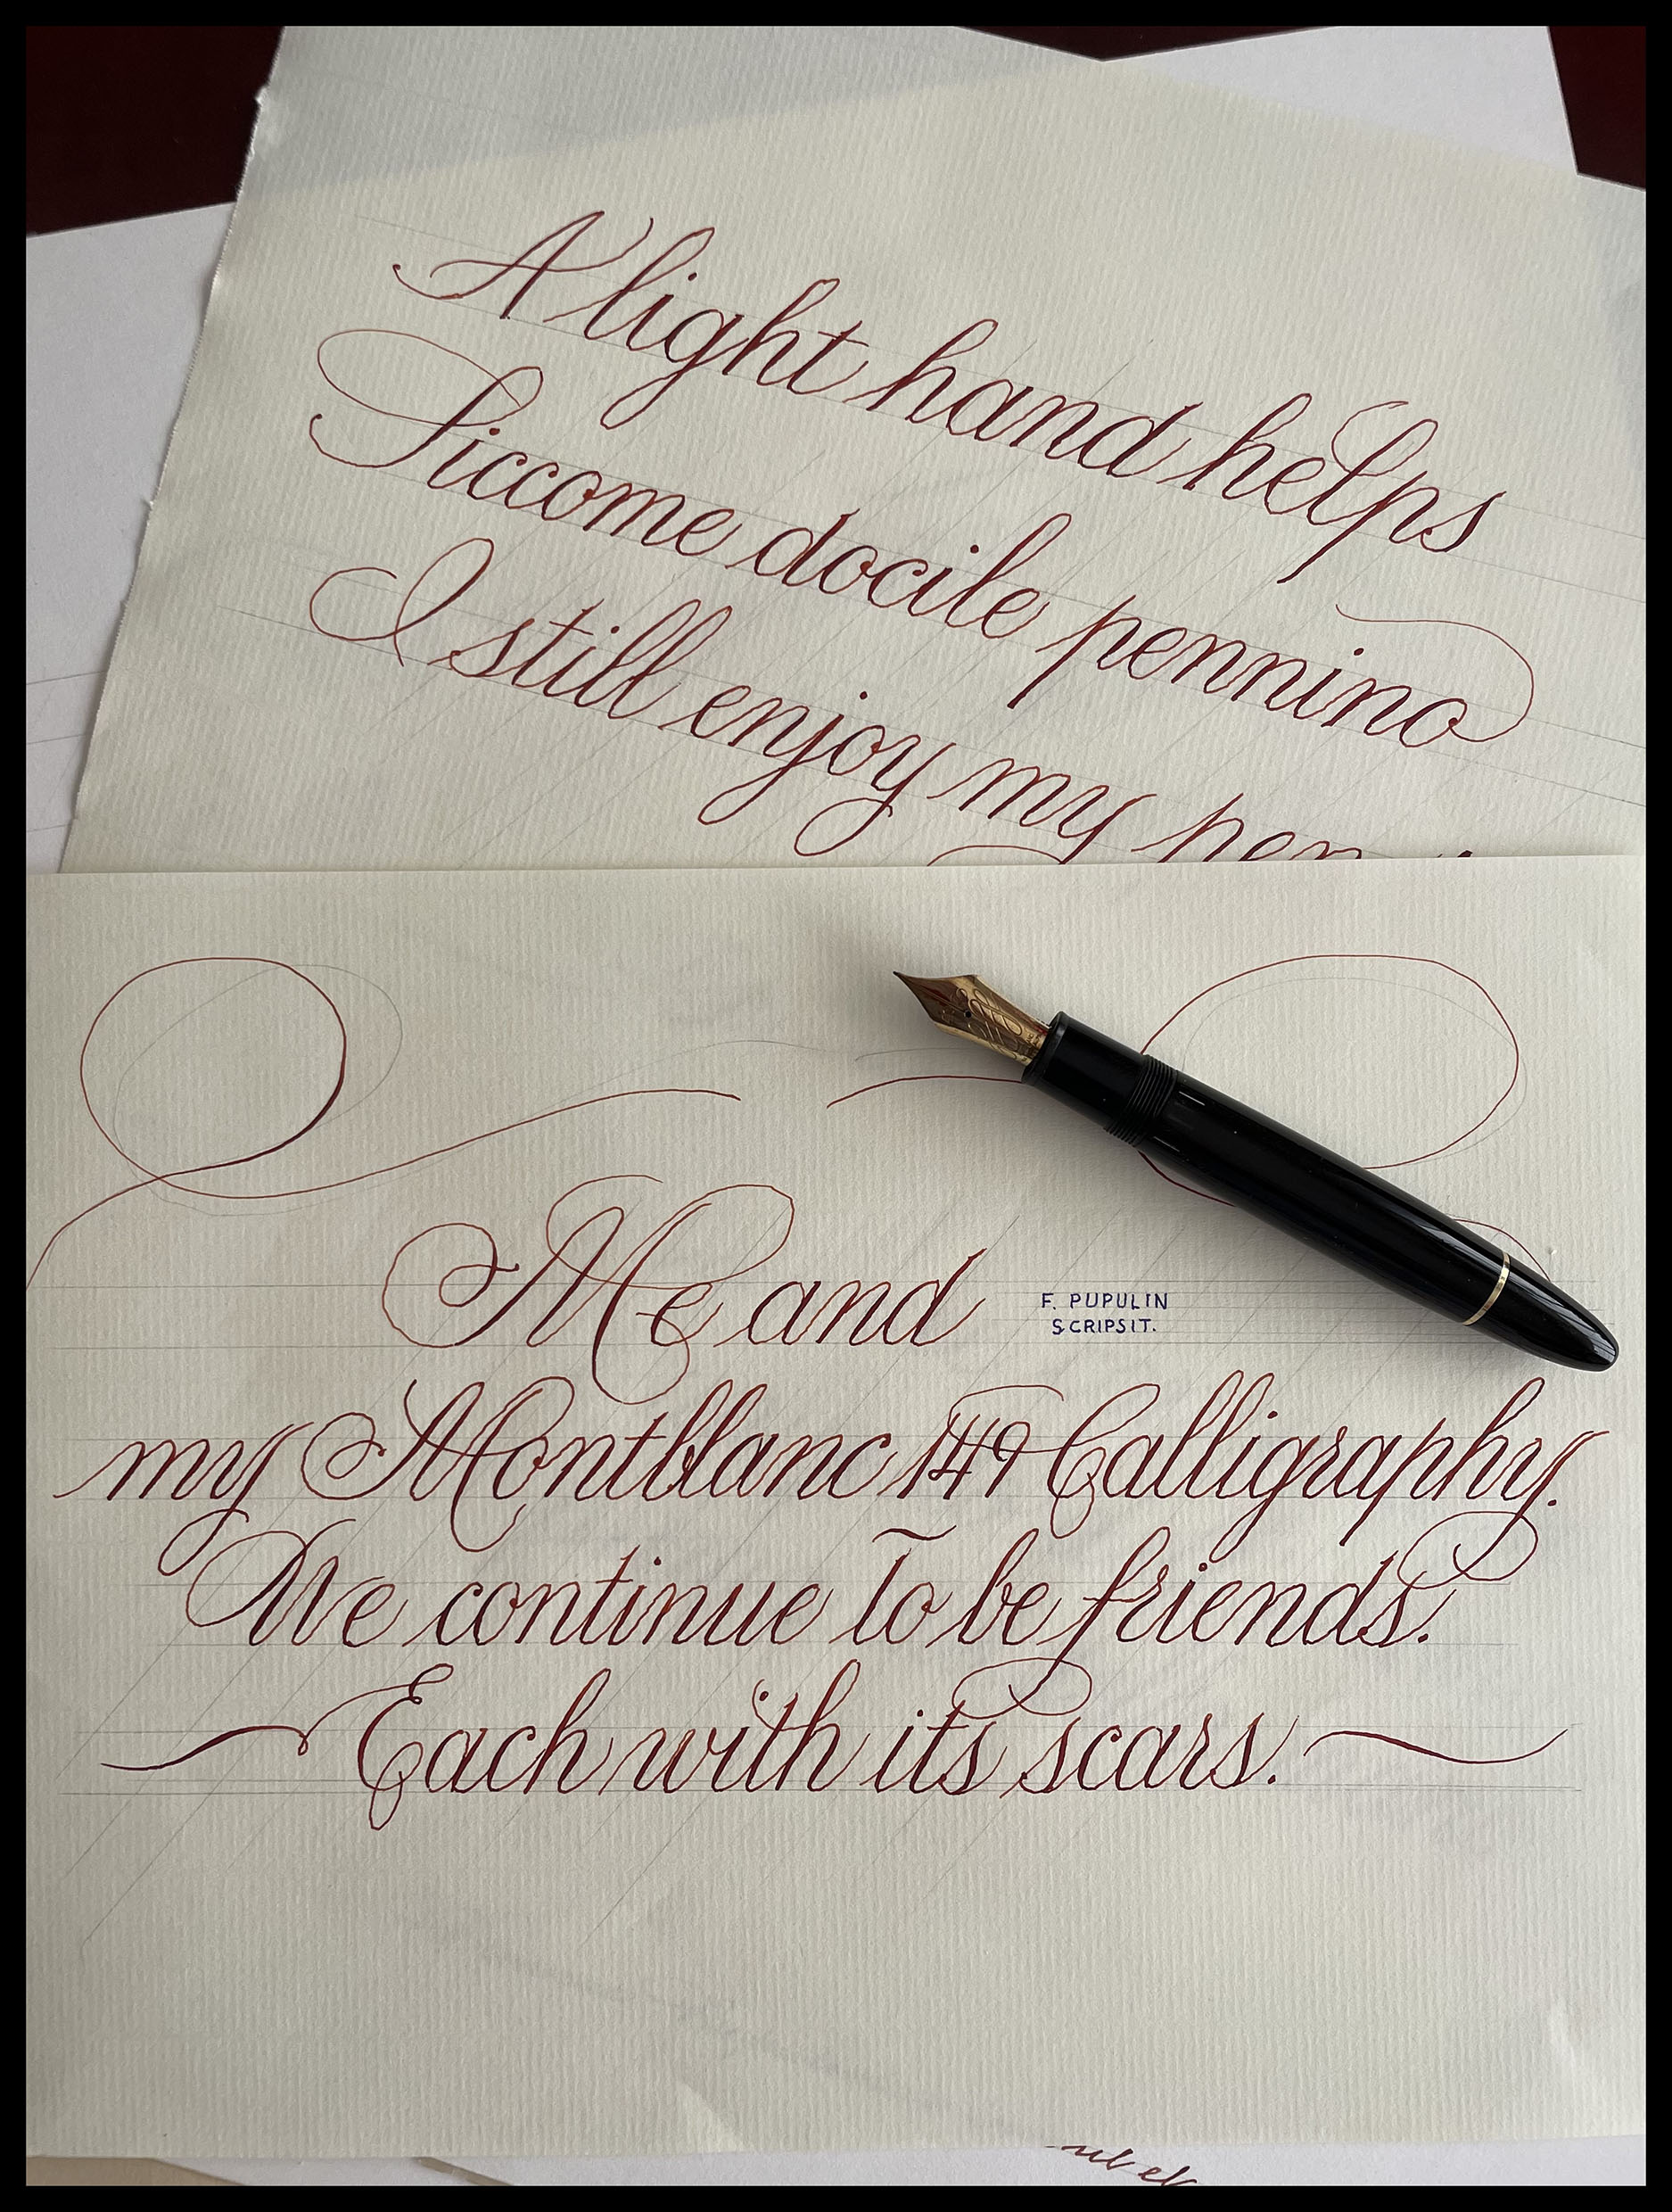 A light hand helps
Siccome docile pennino
I still enjoy my pen
Me and
F. PUPULIN
SCRIPSIT.
my Montblanc 149 Calligraphy.
We continue to be friends.
Each with its scars.